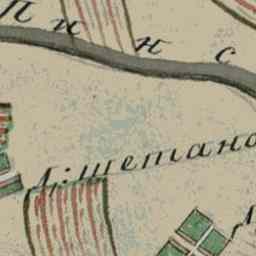 П и н с
Д: шетано